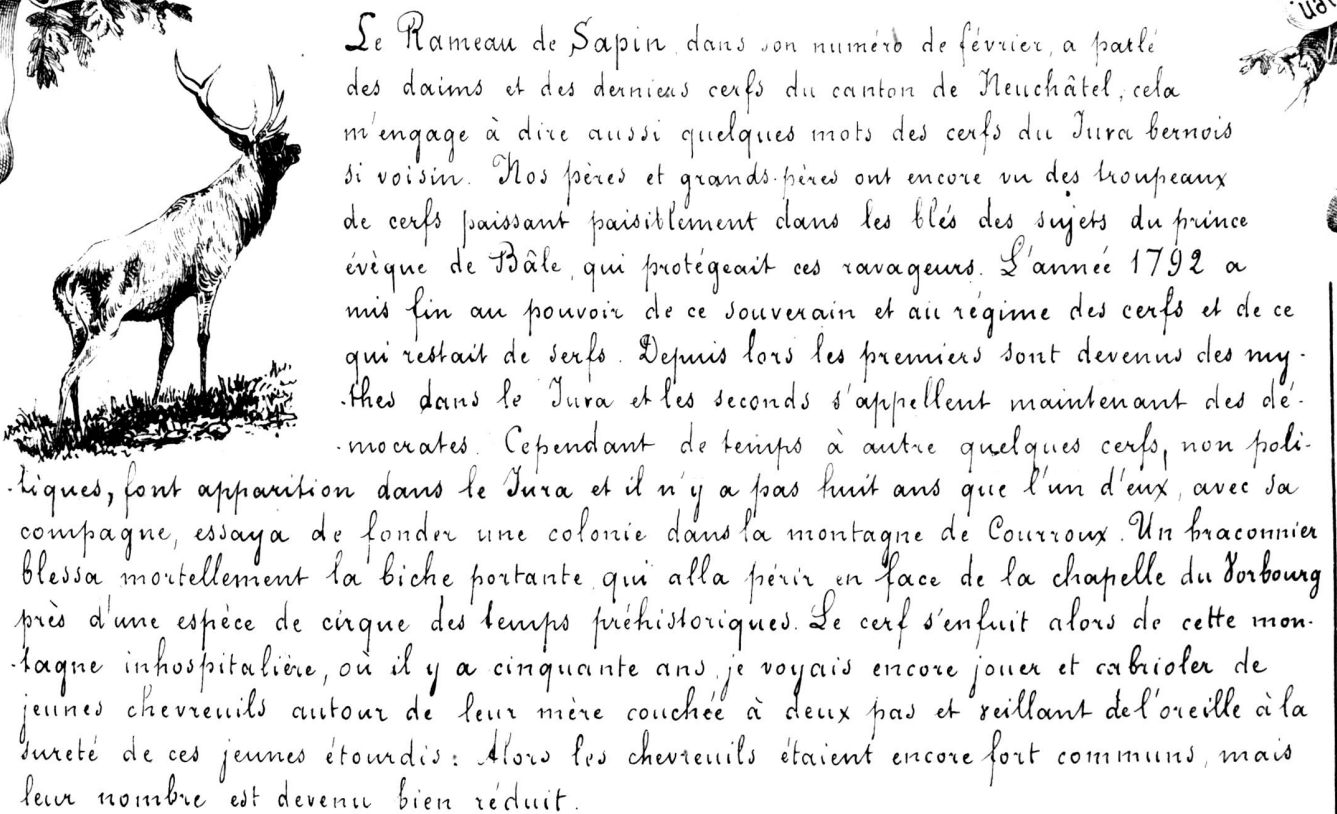 Le Rameau de Sapin, dans son numéro de février, a parlé
des daims et des derniers cerfs du canton de Neuchâtel, cela
m'engage à dire aussi quelques mots des cerfs du Jura bernois
si voisin. Nos pères et grands-pères ont encore vu des troupeaux
de cerfs paissant paisiblement dans les blés des sujets du prince
évèque de Bâle, qui protégeait ces ravageurs. L'année 1792 a
mis fin au pouvoir de ce souverain et au régime des cerfs et de ce
qui restait de serfs. Depuis lors les premiers sont devenus des my-
-thes dans le Jura et les seconds s'appellent maintenant des dé-
-mocrates. Cependant de temps à autre quelques cerfs, non poli-
-tiques, font apparition dans le Jura et il n'y a pas huit ans que l'un d'eux, avec sa
compagne, essaya de fonder une colonie dans la montagne de Courroux. Un braconnier
blessa mortellement la biche portante qui alla périr en face de la chapelle du Vorbourg
près d'une espèce de cirque des temps préhistoriques. Le cerf s'enfuit alors de cette mon-
-tagne inhospitalière, où il y a cinquante ans, je voyais encore jouer et cabrioler de
jeunes chevreuils autour de leur mère couchée à deux pas et veillant de l'oreille à la
sureté de ces jeunes étourdis: Alors les chevreuils étaient encore fort communs, mais
leur nombre est devenu bien réduit.